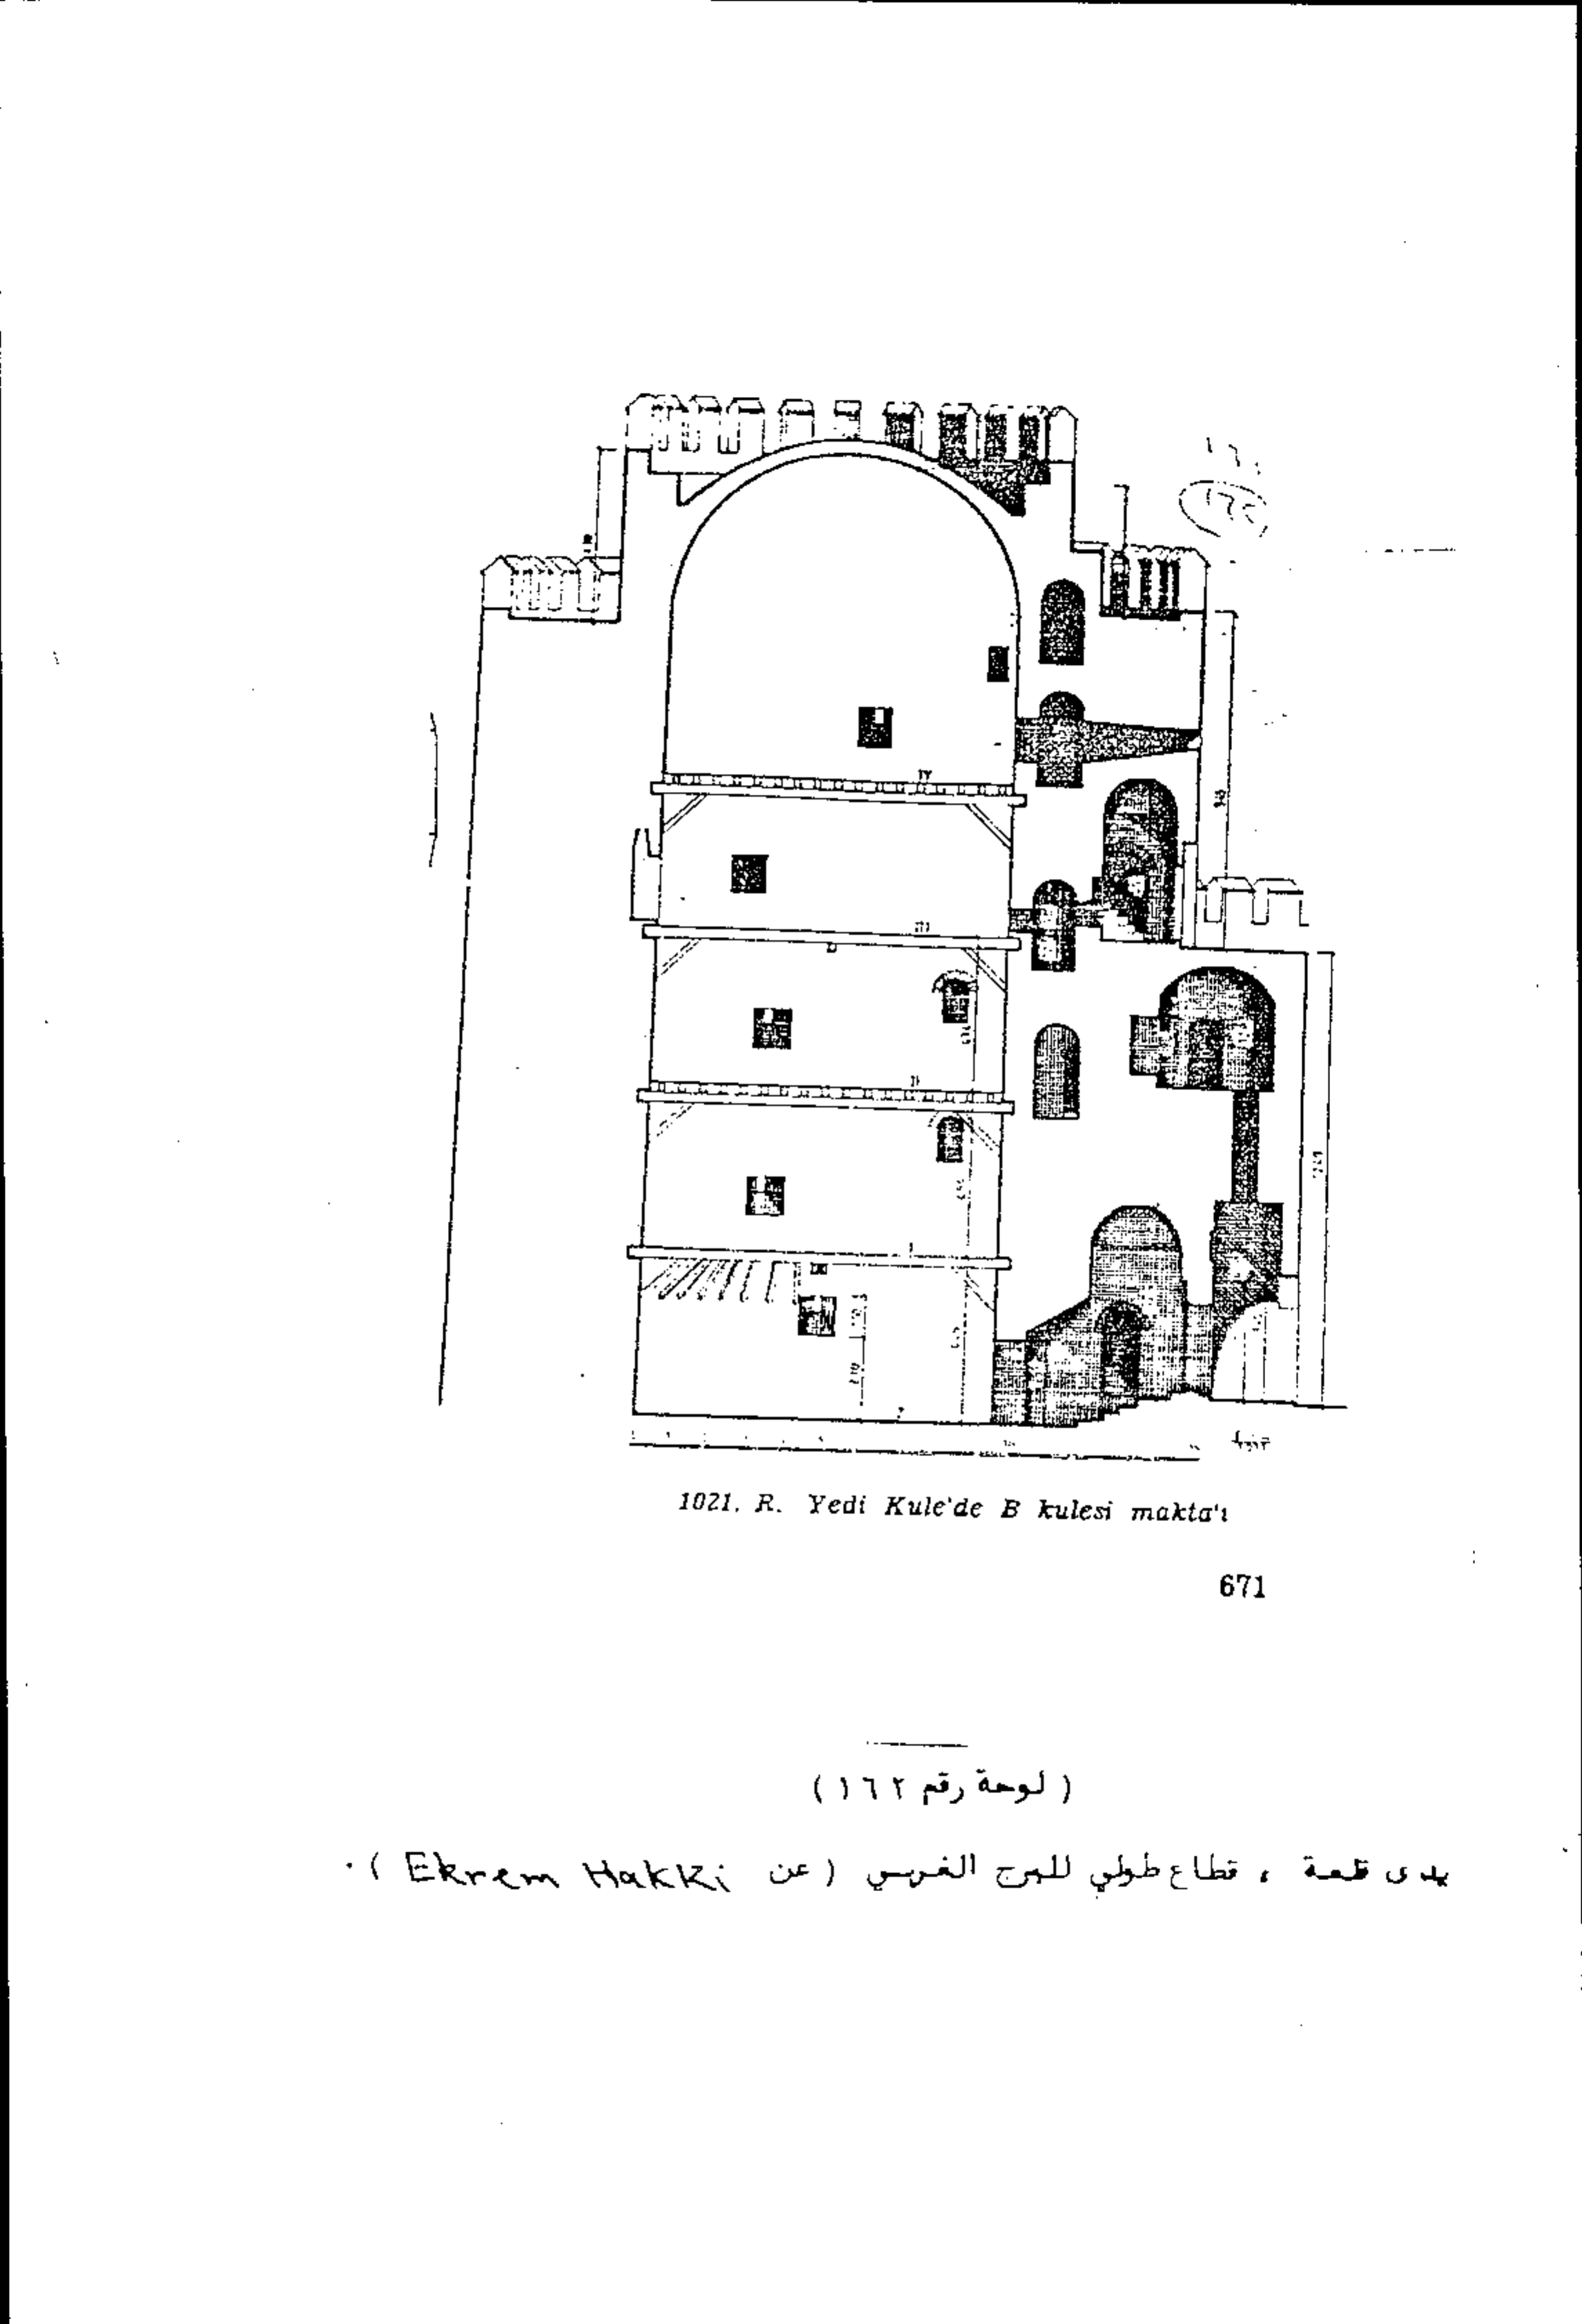 ١٦٢
IV
III
II
I
1021. R. Yedi Kule'de B kulesi makta'ı
671
( لوحة رقم ١٦٢ )
يدى قلعة ، قطاع طولي للبرج الغربي ( عن Ekrem Hakki ) .